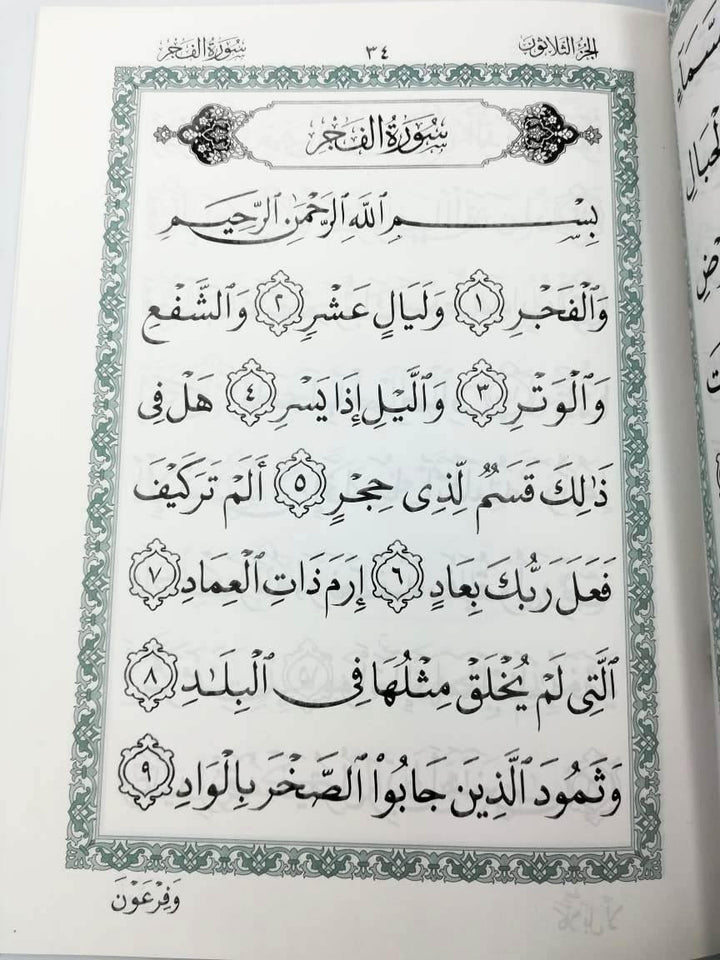 الجزء الثلاثون ٣٤ سورة الفجر
سُورَةُ الفَجْرِ
بِسْمِ ٱللَّهِ ٱلرَّحْمَٰنِ ٱلرَّحِيمِ
وَٱلْفَجْرِ ١ وَلَيَالٍ عَشْرٍ ٢ وَٱلشَّفْعِ
وَٱلْوَتْرِ ٣ وَٱلَّيْلِ إِذَا يَسْرِ ٤ هَلْ فِى
ذَٰلِكَ قَسَمٌ لِّذِى حِجْرٍ ٥ أَلَمْ تَرَ كَيْفَ
فَعَلَ رَبُّكَ بِعَادٍ ٦ إِرَمَ ذَاتِ ٱلْعِمَادِ ٧
ٱلَّتِى لَمْ يُخْلَقْ مِثْلُهَا فِى ٱلْبِلَٰدِ ٨
وَثَمُودَ ٱلَّذِينَ جَابُوا۟ ٱلصَّخْرَ بِٱلْوَادِ ٩
وَفِرْعَوْنَ